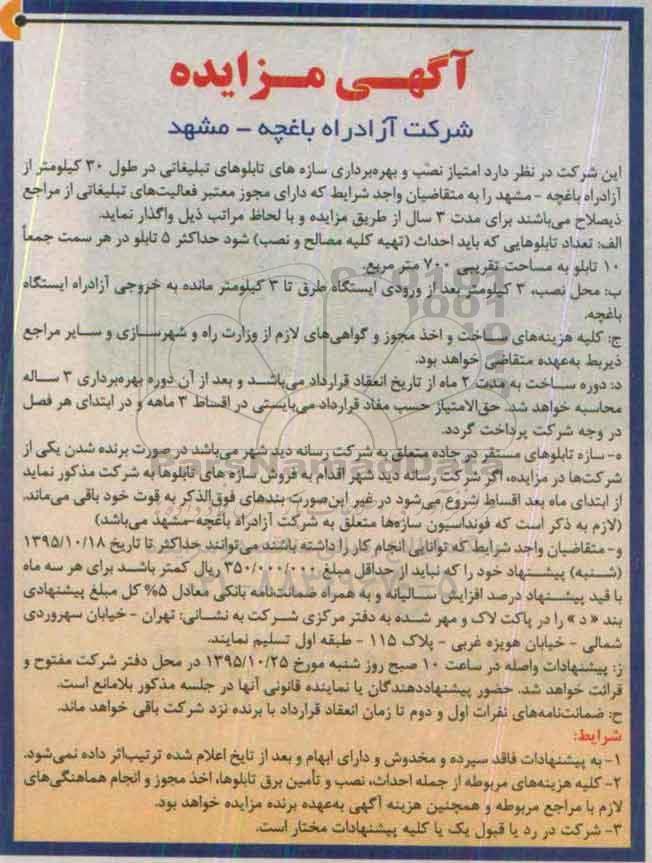 آگهی مزایده
شرکت آزادراه باغچه - مشهد
این شرکت در نظر دارد امتیاز نصب و بهره‌برداری سازه های تابلوهای تبلیغاتی در طول ۳۰ کیلومتر از
آزادراه باغچه - مشهد را به متقاضیان واجد شرایط که دارای مجوز معتبر فعالیت‌های تبلیغاتی از مراجع
ذیصلاح می‌باشند برای مدت ۳ سال از طریق مزایده و با لحاظ مراتب ذیل واگذار نماید.
الف: تعداد تابلوهایی که باید احداث (تهیه کلیه مصالح و نصب) شود حداکثر ۵ تابلو در هر سمت جمعاً
۱۰ تابلو به مساحت تقریبی ۷۰۰ متر مربع.
ب: محل نصب، ۳ کیلومتر بعد از ورودی ایستگاه طرق تا ۳ کیلومتر مانده به خروجی آزادراه ایستگاه
باغچه.
ج: کلیه هزینه‌های ساخت و اخذ مجوز و گواهی‌های لازم از وزارت راه و شهرسازی و سایر مراجع
ذیربط به‌عهده متقاضی خواهد بود.
د: دوره ساخت به مدت ۲ ماه از تاریخ انعقاد قرارداد می‌باشد و بعد از آن دوره بهره‌برداری ۳ ساله
محاسبه خواهد شد. حق‌الامتیاز حسب مفاد قرارداد می‌بایستی در اقساط ۳ ماهه و در ابتدای هر فصل
در وجه شرکت پرداخت گردد.
ه- سازه تابلوهای مستقر در جاده متعلق به شرکت رسانه دید شهر می‌باشد در صورت برنده شدن یکی از
شرکت‌ها در مزایده، اگر شرکت رسانه دید شهر اقدام به فروش سازه های تابلوها به شرکت مذکور نماید
از ابتدای ماه بعد اقساط شروع می‌شود در غیر این‌صورت بندهای فوق‌الذکر به قوت خود باقی می‌ماند.
(لازم به ذکر است که فونداسیون سازه‌ها متعلق به شرکت آزادراه باغچه-مشهد می‌باشد)
و- متقاضیان واجد شرایط که توانایی انجام کار را داشته باشند می‌توانند حداکثر تا تاریخ ۱۳۹۵/۱۰/۱۸
(شنبه) پیشنهاد خود را که نباید از حداقل مبلغ ۳۵۰/۰۰۰/۰۰۰ ریال کمتر باشد برای هر سه ماه
با قید پیشنهاد درصد افزایش سالیانه و به همراه ضمانت‌نامه بانکی معادل ۵% کل مبلغ پیشنهادی
بند « د » را در پاکت لاک و مهر شده به دفتر مرکزی شرکت به نشانی: تهران - خیابان سهروردی
شمالی - خیابان هویزه غربی - پلاک ۱۱۵ - طبقه اول تسلیم نمایند.
ز: پیشنهادات واصله در ساعت ۱۰ صبح روز شنبه مورخ ۱۳۹۵/۱۰/۲۵ در محل دفتر شرکت مفتوح و
قرائت خواهد شد. حضور پیشنهاددهندگان یا نماینده قانونی آنها در جلسه مذکور بلامانع است.
ح: ضمانت‌نامه‌های نفرات اول و دوم تا زمان انعقاد قرارداد با برنده نزد شرکت باقی خواهد ماند.
شرایط:
۱- به پیشنهادات فاقد سپرده و مخدوش و دارای ابهام و بعد از تایخ اعلام شده ترتیب‌اثر داده نمی‌شود.
۲- کلیه هزینه‌های مربوطه از جمله احداث، نصب و تأمین برق تابلوها، اخذ مجوز و انجام هماهنگی‌های
لازم با مراجع مربوطه و همچنین هزینه آگهی به‌عهده برنده مزایده خواهد بود.
۳- شرکت در رد یا قبول یک یا کلیه پیشنهادات مختار است.
ParsNamadData